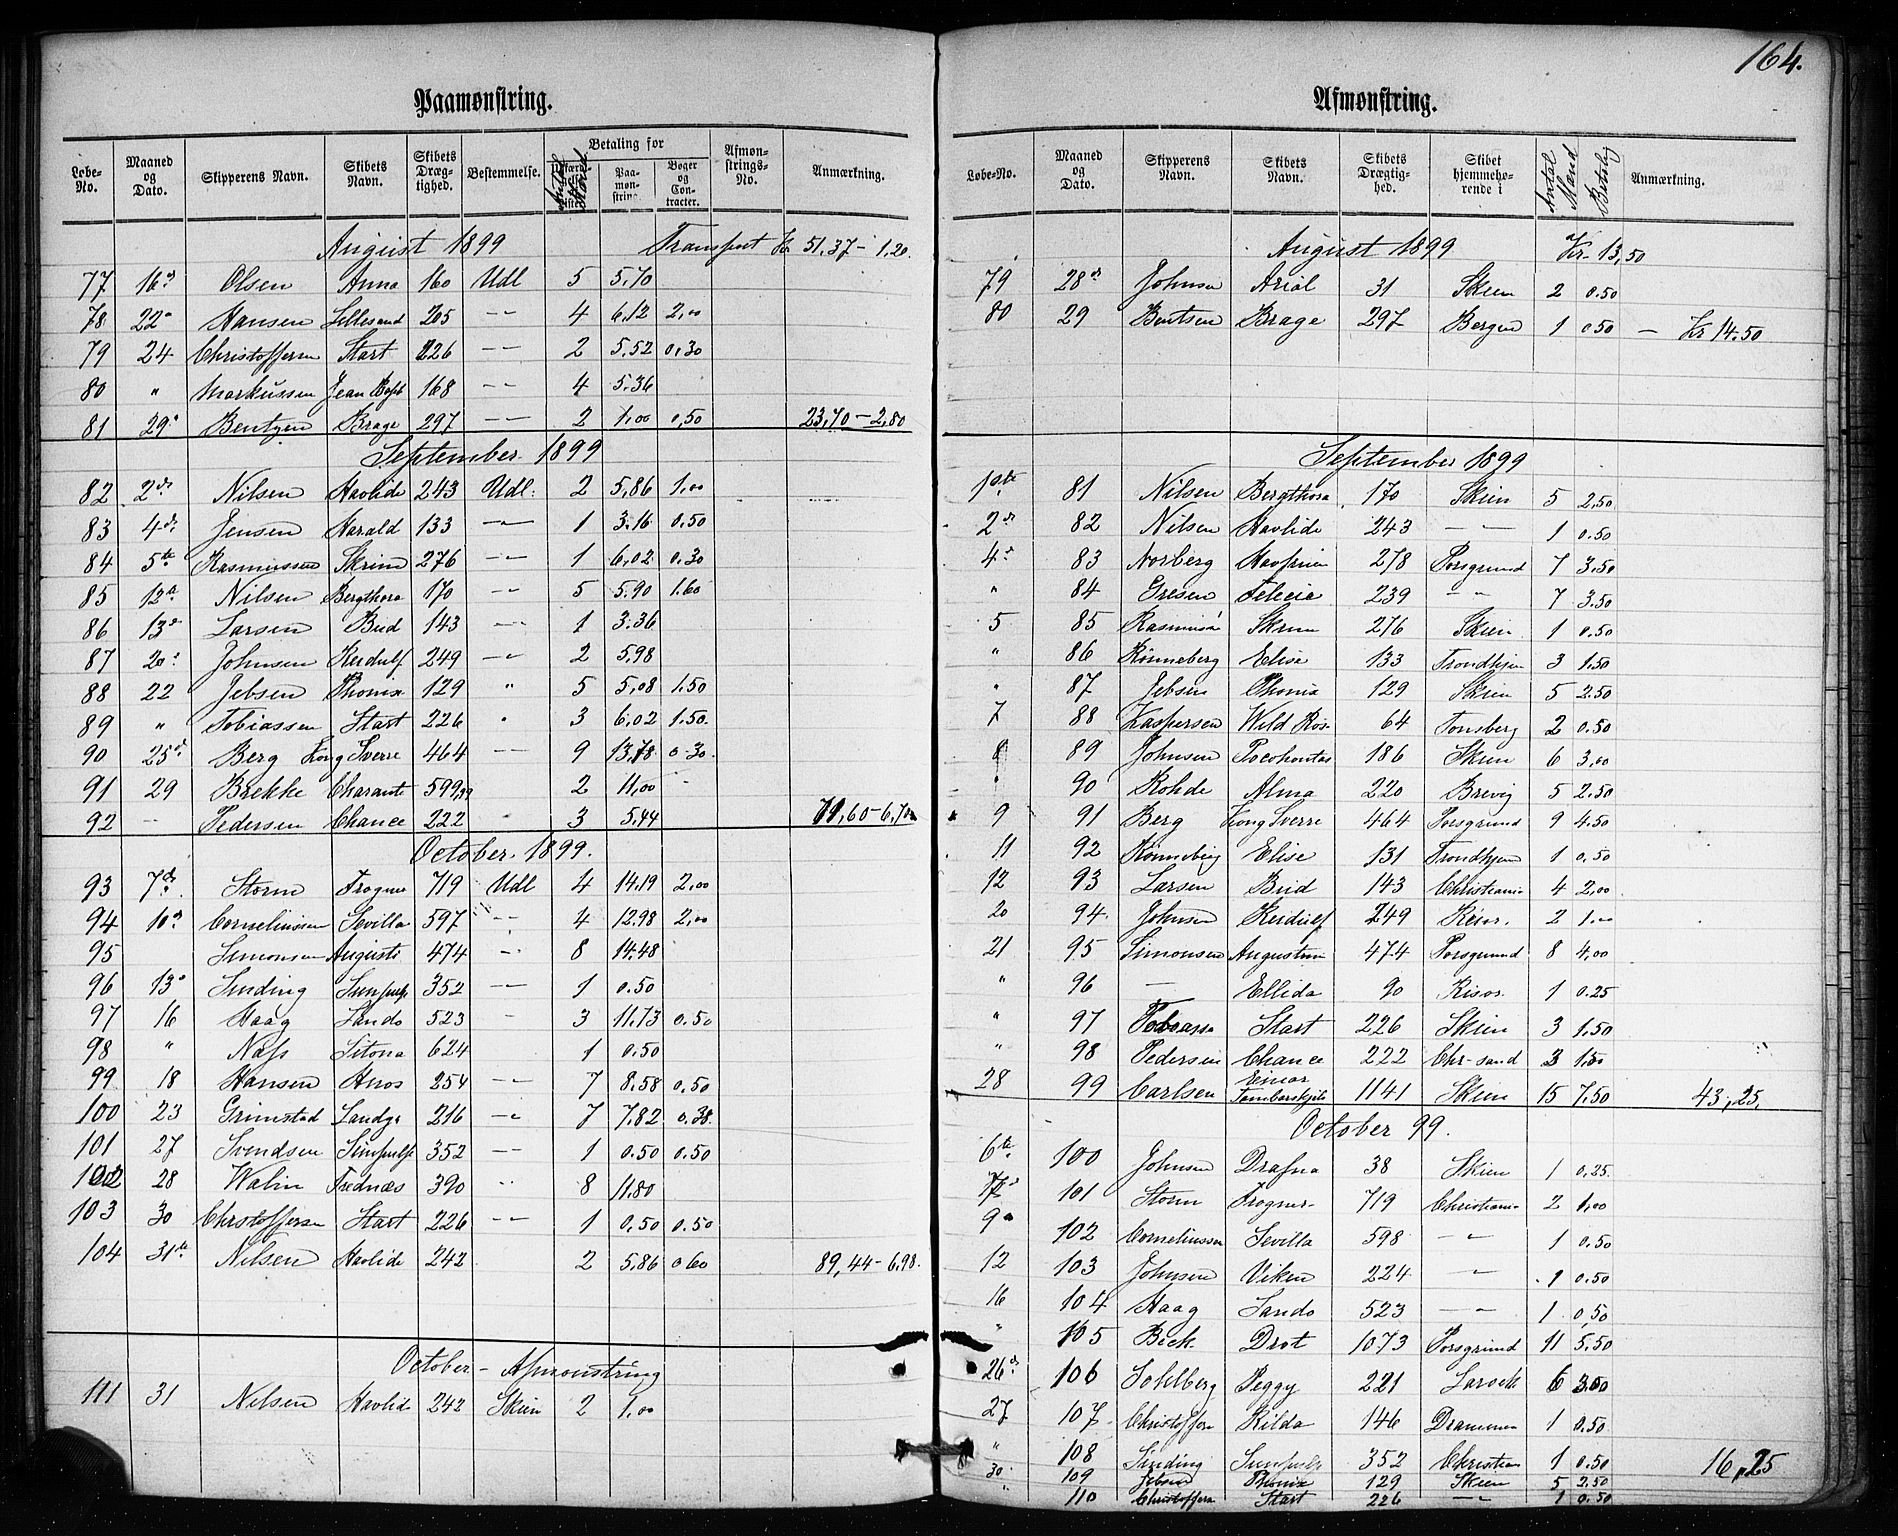 164.
Paamønstring.
Løbe-No. Maaned og Dato. Skipperens Navn. Skibets Navn. Skibets Drægtighed. Bestemmelse. Betaling for Antal Mand Paamønstring Bøger og Contracter. Afmønstrings-No. Anmærkning.
August 1899 Transport Kr 51.37 - 1.20.
77 16d Olsen Anna 160 Udl 5 5.70
78 22d Hansen Lillesand 205 -"- 4 6.12 2,00
79 24 Christoffersen Start 226 -"- 2 5.52 0.30
80 " Markussen Jean Bapt 168 -"- 4 5.36
81 29d Bentzen Brage 297 -"- 2 1,00 0,50 23,70 - 2,80
September 1899
82 2dn Nilsen Havlide 243 Udl. 2 5,86 1,00
83 4de Jensen Harald 133 -"- 1 3.16 0.50
84 5te Rasmussen Skrim 276 -"- 1 6,02 0.30
85 12te Nilsen Bergthora 170 -"- 5 5.90 1.60
86 13d Larsen Bud 143 -"- 1 3.36
87 20d Johnsen Herdulf 249 -"- 2 5,98
88 22 Jebsen Phønix 129 " 5 5,08 1.50
89 " Tobiassen Start 226 " 3 6,02 1.50.
90 25d Berg Kong Sverre 464 -"- 9 13,78 0.30
91 29 Brekke Charante 599,99 2 11,00 -
92 - Pedersen Chance 222 3 5.44 71,60 - 6,70
October 1899.
93 7de Storm Frogner 719 Udl 4 14.19 2,00
94 10d Corneliussen Sevilla 597 -"- 4 12.98 2,00
95 Simonsen Augusti 474 -"- 8 14.48
96 13d Sinding 352 -- 1 0.50
97 16 Haag Sando 523 - 3 11.73 0.50
98 " Næss Sitona 624 1 0.50
99 18 Hansen Heros 254 -"- 7 8.58 0.50
100 23 Grimstad 216 -"- 7 7.82 0.38
101 27 Svendsen 352 -"- 1 0.50 0.50
102 28 Walin Frednæs 390 " 8 11.80
103 30 Christoffersen Start 226 -"- 1 0,50 0.50
104 31te Nilsen Havlide 242 2 5,86 0.60 89,44 - 6.98.
October - Afmønstring
111 31 Nilsen Havlid 242 Skien 2 1,00
Afmønstring.
Løbe-No. Maaned og Dato. Skipperens Navn. Skibets Navn. Skibets Drægtighed. Skibet hjemmehørende i Antal Mand Betaling Anmærkning.
August 1899 Kr. 13,50
79 28d Johnsen Arial 31 Skien 2 0.50
80 29 Bentsen Brage 297 Bergen 1 0.50 - Kr 14.50
September 1899
1ste 81 Nilsen Bergthora 170 Skien 5 2,50
2dn 82 Nilsen Havlide 243 -"- 1 0.50
4d 83 Norberg 278 Porsgrund 7 3.50
" 84 Gresen Felicia 239 -"- 7 3.50
5 85 Rasmuss. Skrim 276 Skien 1 0.50
" 86 Rønneberg Elise 133 Trondhjem 3 1.50
" 87 Jebsen Phønix 129 Skien 5 2.50
7 88 Kaspersen Wild Ros 64 Tønsberg 2 0.50
8 89 Johnsen Pocohontas 186 Skien 6 3,00
" 90 Rohde Alma 220 Brevig 5 2.50
9 91 Berg Kong Sverre 464 Porsgrund 9 4.50
11 92 Rønneberg Elise 131 Trondhjem 1 0,50
12 93 Larsen Bud 143 Christiania 4 2,00
20 94. Johnsen Herdulf 249 Risør. 2 1.00
21 95 Simonsen Augustinus 474 Porsgrund 8 4,00
" 96 - Ellida 90 Risør. 1 0.25
" 97 Tobiassen Start 226 Skien 3 1,50
" 98 Pedersen Chance 222 Chr-sand 3 1,50
28 99 Carlsen Einar Tambarskjelve 1141 Skien 15 7,50 43,25,
October 99.
6te 100 Johnsen Drafna 38 Skien 1 0,25.
7d 101 Storm Frogner 719 Christiania 2 1,00
9 102 Corneliussen Sevilla 598 -"- 1 0.50
12 103 Johnsen Viken 224 -"- 1 0.50
16 104 Haag Sando 523 -"- 1 0,50
" 105 Beck Drot 1073 Porsgrund 11 5.50
26de 106 Sohlberg Peggy 221 Larvik 6 3.00
27 107 Christoffersen Hilda 146 Drammen 1 0.50
" 108 Sinding 352 Christian 1 0.50 16,25
30 109 Jebsen Phønix 129 Skien 5 2.50
" 110 Christoffersen Start 226 -"- 1 0.50